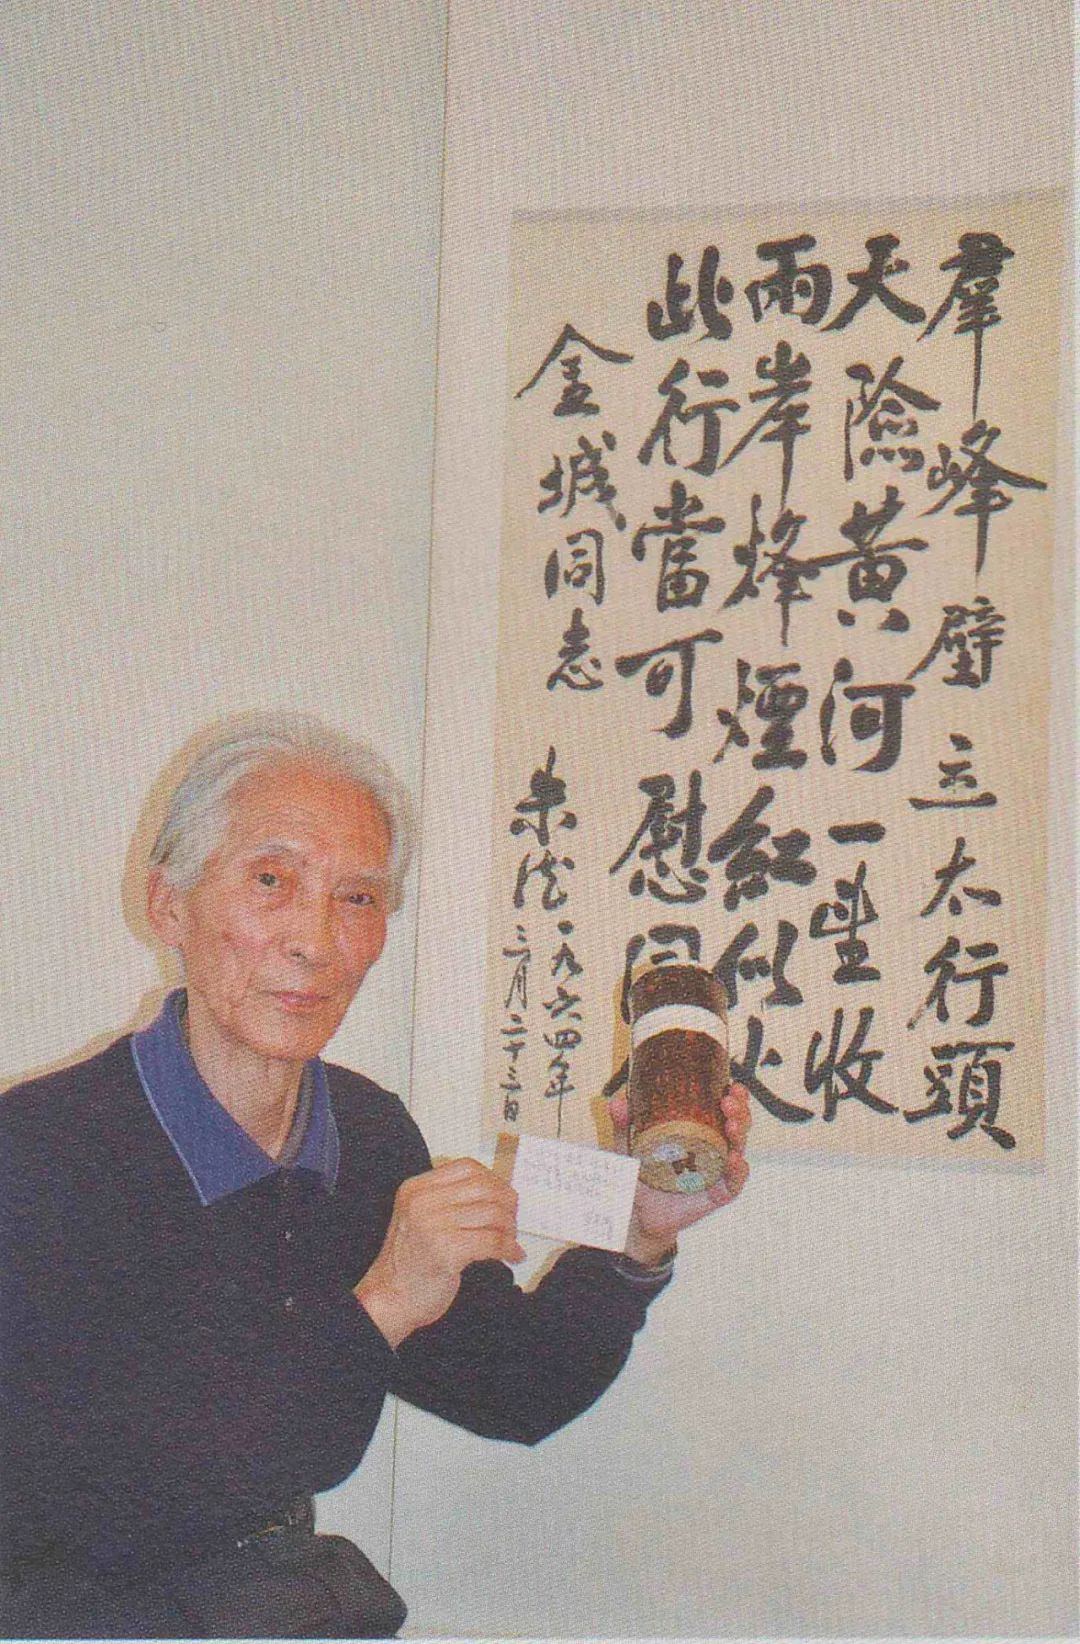 羣峰壁立太行頭
天險黃河一望收
兩岸烽煙紅似火
此行當可慰同
金城同志
朱德一九六四年
三月二十三日